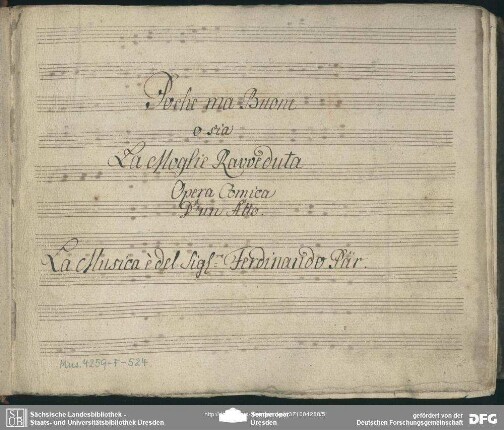 Poche ma Buoni
o sia
La Moglie Ravveduta
Opera Comica
D'un Atto.
La Musica è del Sigr. Ferdinando Pär
Mus. 4259-F-524
SLUB Sächsische Landesbibliothek -
Staats- und Universitätsbibliothek Dresden
Semperoper
Dresden
gefördert von der
Deutschen Forschungsgemeinschaft
DFG